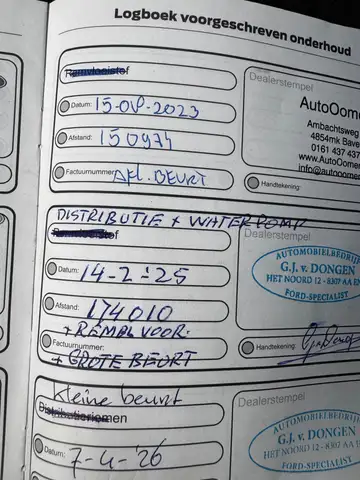 Logboek voorgeschreven onderhoud
Remvloeistof
Datum: 15-08-2023
Afstand: 150974
Factuurnummer: AFL. BEURT
Dealerstempel
AutoOomen
Ambachtsweg
4854mk Bave
0161 437 437
www.AutoOomen
info@autooomen
Handtekening:
DISTRIBUTIE + WATERPOMP
Remvloeistof
Datum: 14-2-'25
Afstand: 174010
+ REMAL VOOR.
Factuurnummer:
+ GROTE BEURT
Dealerstempel
AUTOMOBIELBEDRIJF
G.J. v. DONGEN
HET NOORD 12 - 8307 AA EN
FORD-SPECIALIST
Handtekening:
Kleine beurt
Distributieriemen
Datum: 7-4-'26
Dealerstempel
AUTOMOBIELBEDRIJ
G.J. v. DONGEN
HET NOORD 12 - 8307 AA
FORD-SPECIALIST